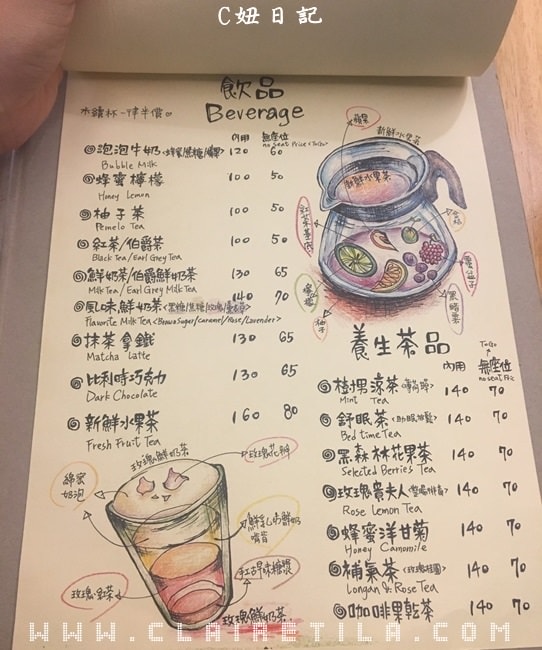 C妞日記
飲品
Beverage
※續杯一律半價。
內用 無座位
no seat Price (ToGo)
泡泡牛奶 120 60
Bubble Milk
蜂蜜檸檬 100 50
Honey Lemon
柚子茶 100 50
Pomelo Tea
紅茶/伯爵茶 100 50
Black Tea/Earl Grey Tea
鮮奶茶/伯爵鮮奶茶 130 65
Milk Tea/Earl Grey Milk Tea
風味鮮奶茶 140 70
Flavorite Milk Tea <Brown Sugar/Caramel/Rose/Lavender>
抹茶拿鐵 130 65
Matcha Latte
比利時巧克力 130 65
Dark Chocolate
新鮮水果茶 160 80
Fresh Fruit Tea
蘋果
新鮮水果茶
新鮮水果茶
柚子
養生茶品
ToGo
內用 無座位
no seat Price
140 70
Mint Tea
舒眠茶 140 70
Bed time Tea
黑森林花果茶 140 70
Selected Berries Tea
玫瑰貴夫人 140 70
Rose Lemon Tea
蜂蜜洋甘菊 140 70
Honey Camomile
補氣茶 <玫瑰桂圓> 140 70
Longan & Rose Tea
咖啡果乾茶 140 70
玫瑰鮮奶茶
玫瑰花瓣
綿密奶泡
玫瑰鮮奶茶
WWW.CLAIRETILA.COM